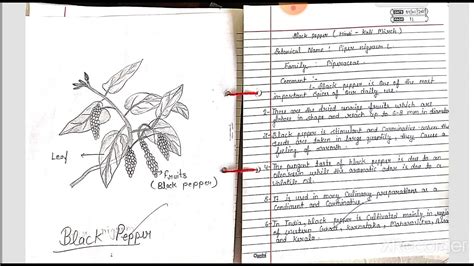 Leaf
fruits
(Black pepper)
Black Pepper
DATE
PAGE
Black pepper (Hindi - Kali Mirch)
Botanical Name : Piper nigrum L.
Family : Piperaceae
Comment :-
1- Black pepper is one of the most
important spices of our daily use.
2- These are the dried unripe fruits which are
globose in shape and reach up to 6-8 mm in diameter
3- Black pepper is stimulant and Carminative when the
seeds are taken in large quantity, they cause a
feeling of warmth.
4- The pungent taste of black pepper is due to an
oleoresin while the aromatic odour is due to a
Volatile oil.
5- It is used in many Culinary preparations as a
Condiment and Carminative.
6- In India, Black pepper is Cultivated mainly in
of western Ghats, Karnataka, Maharashtra,
and Kerala.